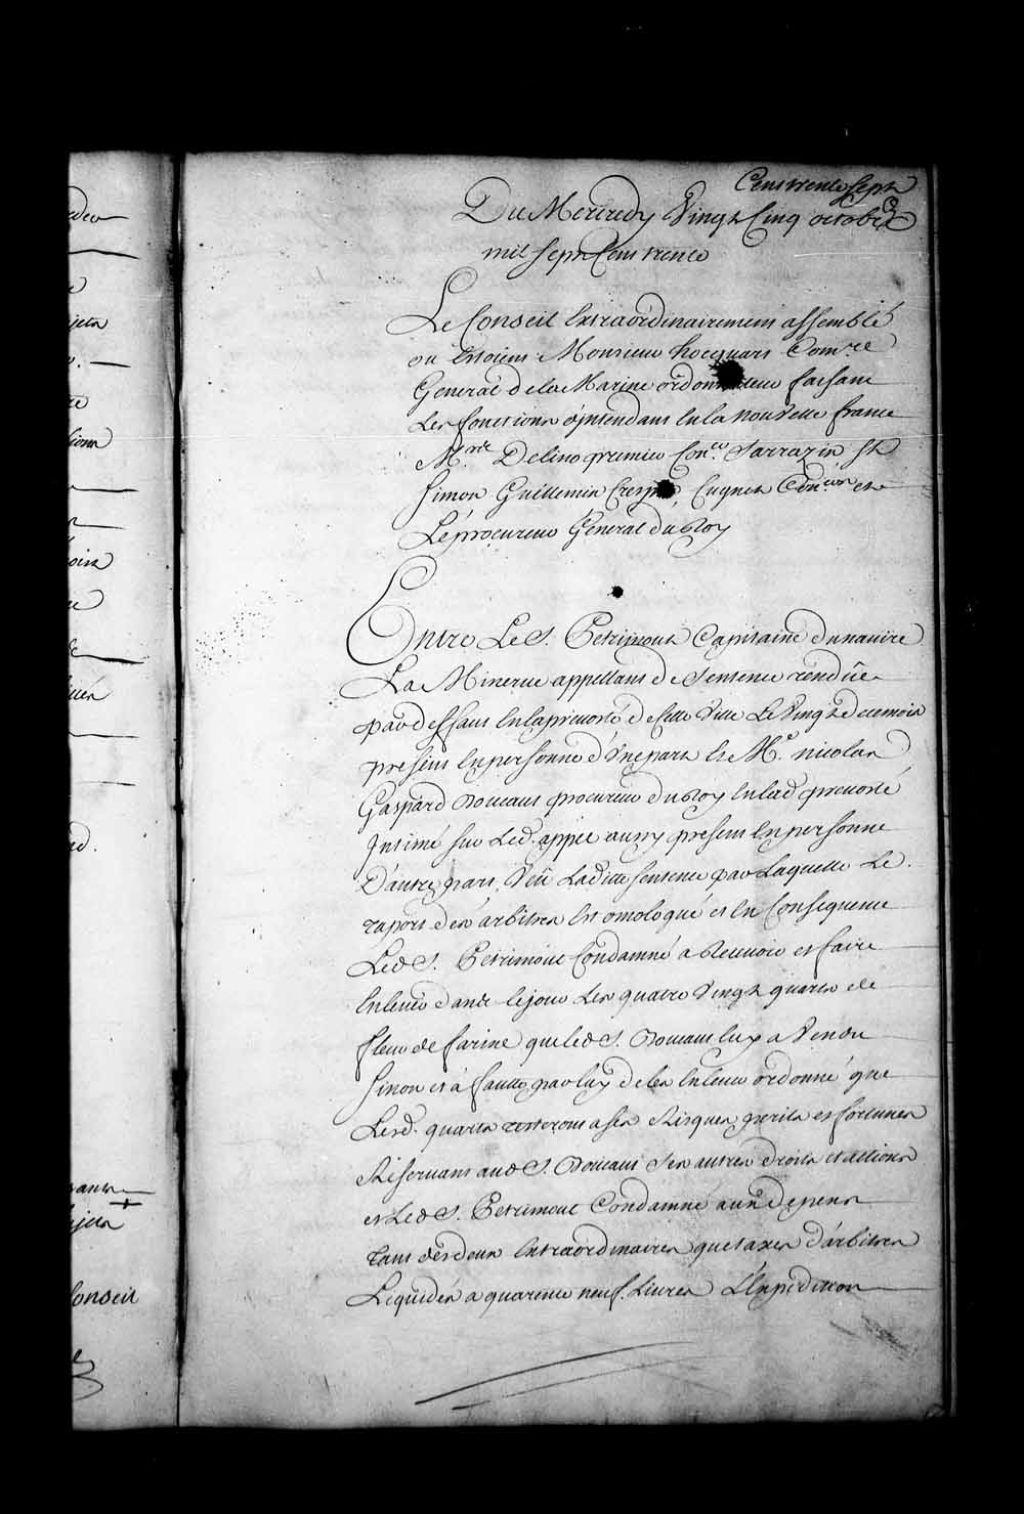 Cent trente Sept
Du Mercredy Vingt Cinq octobre
mil Sept Cens trente
Le Conseil Extraordinairement assemblé
ou Etoient Monsieur hocquart Com.re
General de la Marine ordonnateur faisant
Les fonctions d'jntendant En la nouvelle france
M.rs Delino premier Con.er Sarrazin St
Simon Guillemin Crespin, Cugnet Con.ers et
Le procureur General du Roy
Entre Le S. Petrimoux Capitaine du navire
La Minerve appellant de Sentence rendüe
par deffaut En la prevosté de Cette Ville Le Vingt de ce mois
present En personne d'Vne part Et M.e nicolas
Gaspard Boucaut procureur du Roy En lad. prevosté
Intimé sur Led. appel aussy present En personne
D'autre part, Veü Laditte sentence par Laquelle Le
raport des arbitres Est omologué et En Consequence
Led. S. Petrimoux Condamné a Recevoir et faire
Enlever dans le jour Les quatre Vingt quarts de
fleur de farine que led. S. Boucaut luy a Vendu
Sinon et à faute par luy de les Enlever ordonné que
Lesd. quarts resteront a ses Risques perils et fortunes
Reservant aud. S. Boucaut Ses autres droits et actions
et Led. S. Petrimoux Condamné aux depens
tant des deux Extraordinaires que taxes d'arbitres
Liquidés a quarente neuf Livres L'Expedition